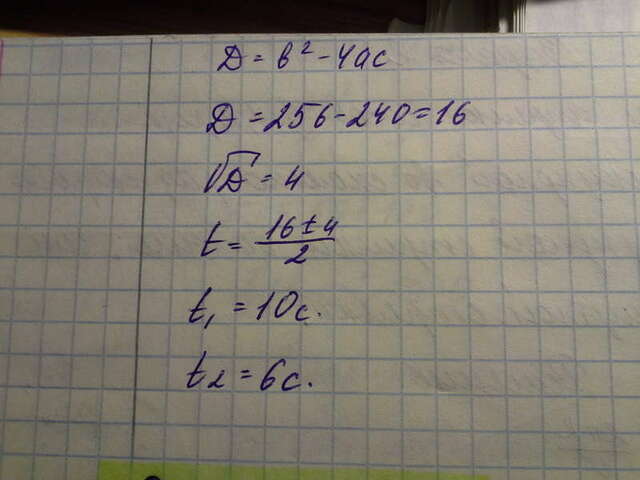 D = b² - 4ac
D = 256 - 240 = 16
√D = 4
t = (16 ± 4)/2
t₁ = 10c.
t₂ = 6c.